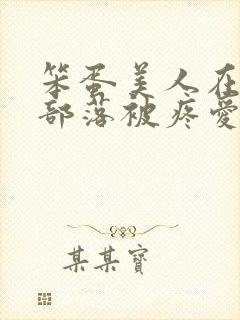 笨蛋美人在
部落被疼愛
某某寶